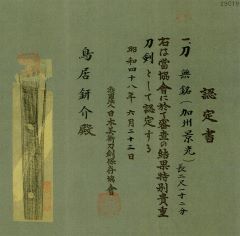 29019
認定書
一、刀 無銘(加州景光) 長二尺二寸二分
右は當協會に於て審査の結果特別貴重
刀剣として認定する
昭和四十八年六月二十三日
財団法人日本美術刀剣保存協會
鳥居釿介殿